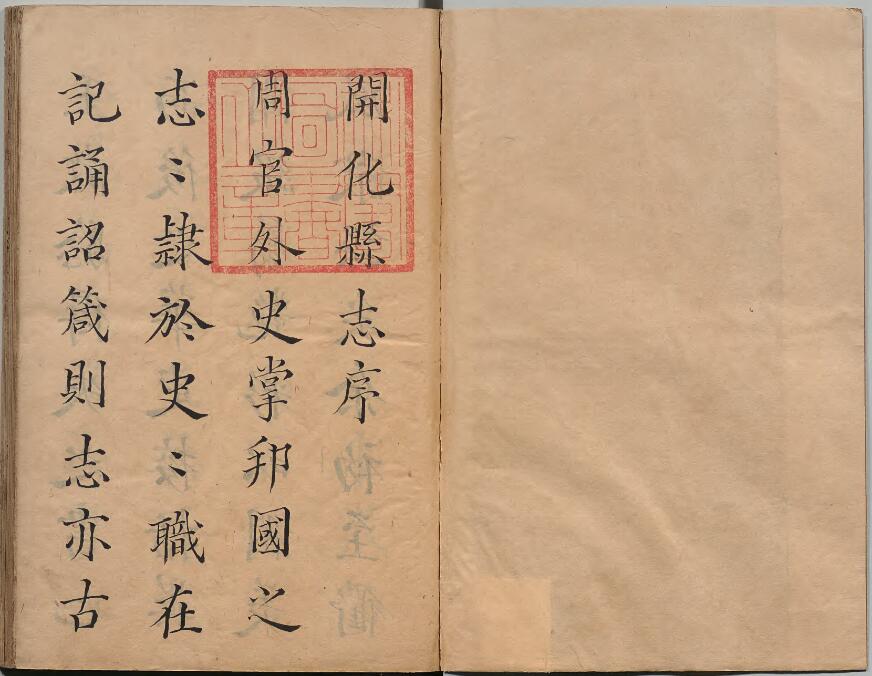 開化縣志序
周官外史掌邦國之
志〻隷於史〻職在
記誦詔箴則志亦古